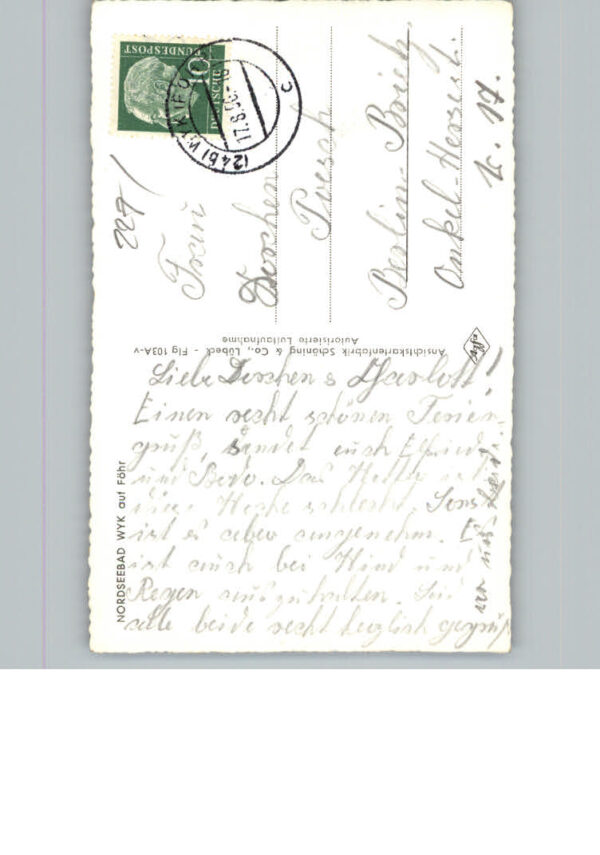 NORDSEEBAD WYK auf Föhr
Liebe Dorchen &
Einen recht schönen Ferien-
gruß, sendet euch Elfriede
und Bodo. Das
diese schlecht. Sonst
ist es aber angenehm. Es
ist auch bei Wind und
Regen auszuhalten. Seid
alle beide recht herzlich gegrüßt
Ansichtskartenfabrik Schöning & Co., Lübeck - Flg 103A-v
Autorisierte Luftaufnahme
Agfa
227/
Frau
Dorchen
Poesch
Berlin-Britz
Onkel-Herse-St.
17.
DEUTSCHE
BUNDESPOST
10
(24b) WYK (FÖHR)
17.8.56
c